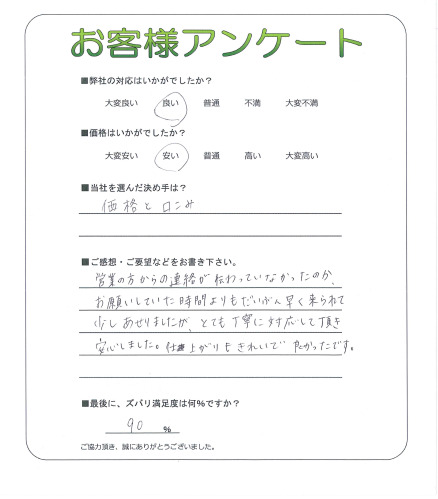 お客様アンケート
■弊社の対応はいかがでしたか？
大変良い　良い　普通　不満　大変不満
■価格はいかがでしたか？
大変安い　安い　普通　高い　大変高い
■当社を選んだ決め手は？
価格と口こみ
■ご感想・ご要望などをお書き下さい。
営業の方からの連絡が伝わっていなかったのか、
お願いしていた時間よりもだいぶん早く来られて
少しあせりましたが、とても丁寧に対応して頂き
安心しました。仕上がりもきれいで良かったです。
■最後に、ズバリ満足度は何%ですか？
90 %
ご協力頂き、誠にありがとうございました。